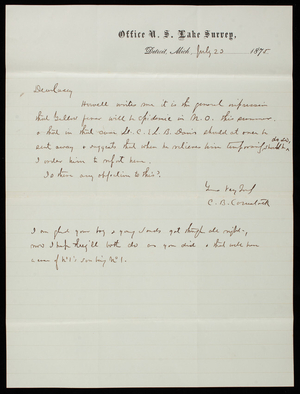 Office U. S. Lake Survey,
Detroit, Mich. July 23 1875
Dear Casey
Howell writes me it is the general impression
that Yellow fever will be epidemic in N.O. this summer
& that in that case Lt. C. E. L. B. Davis should at once be
sent away & suggests that when he relieves him temporarily
I order him to report here.
Is there any objection to this?
Yours Very Truly
C. B. Comstock
I am glad your boy & young got through all right,
now I hope they'll both do as you did &